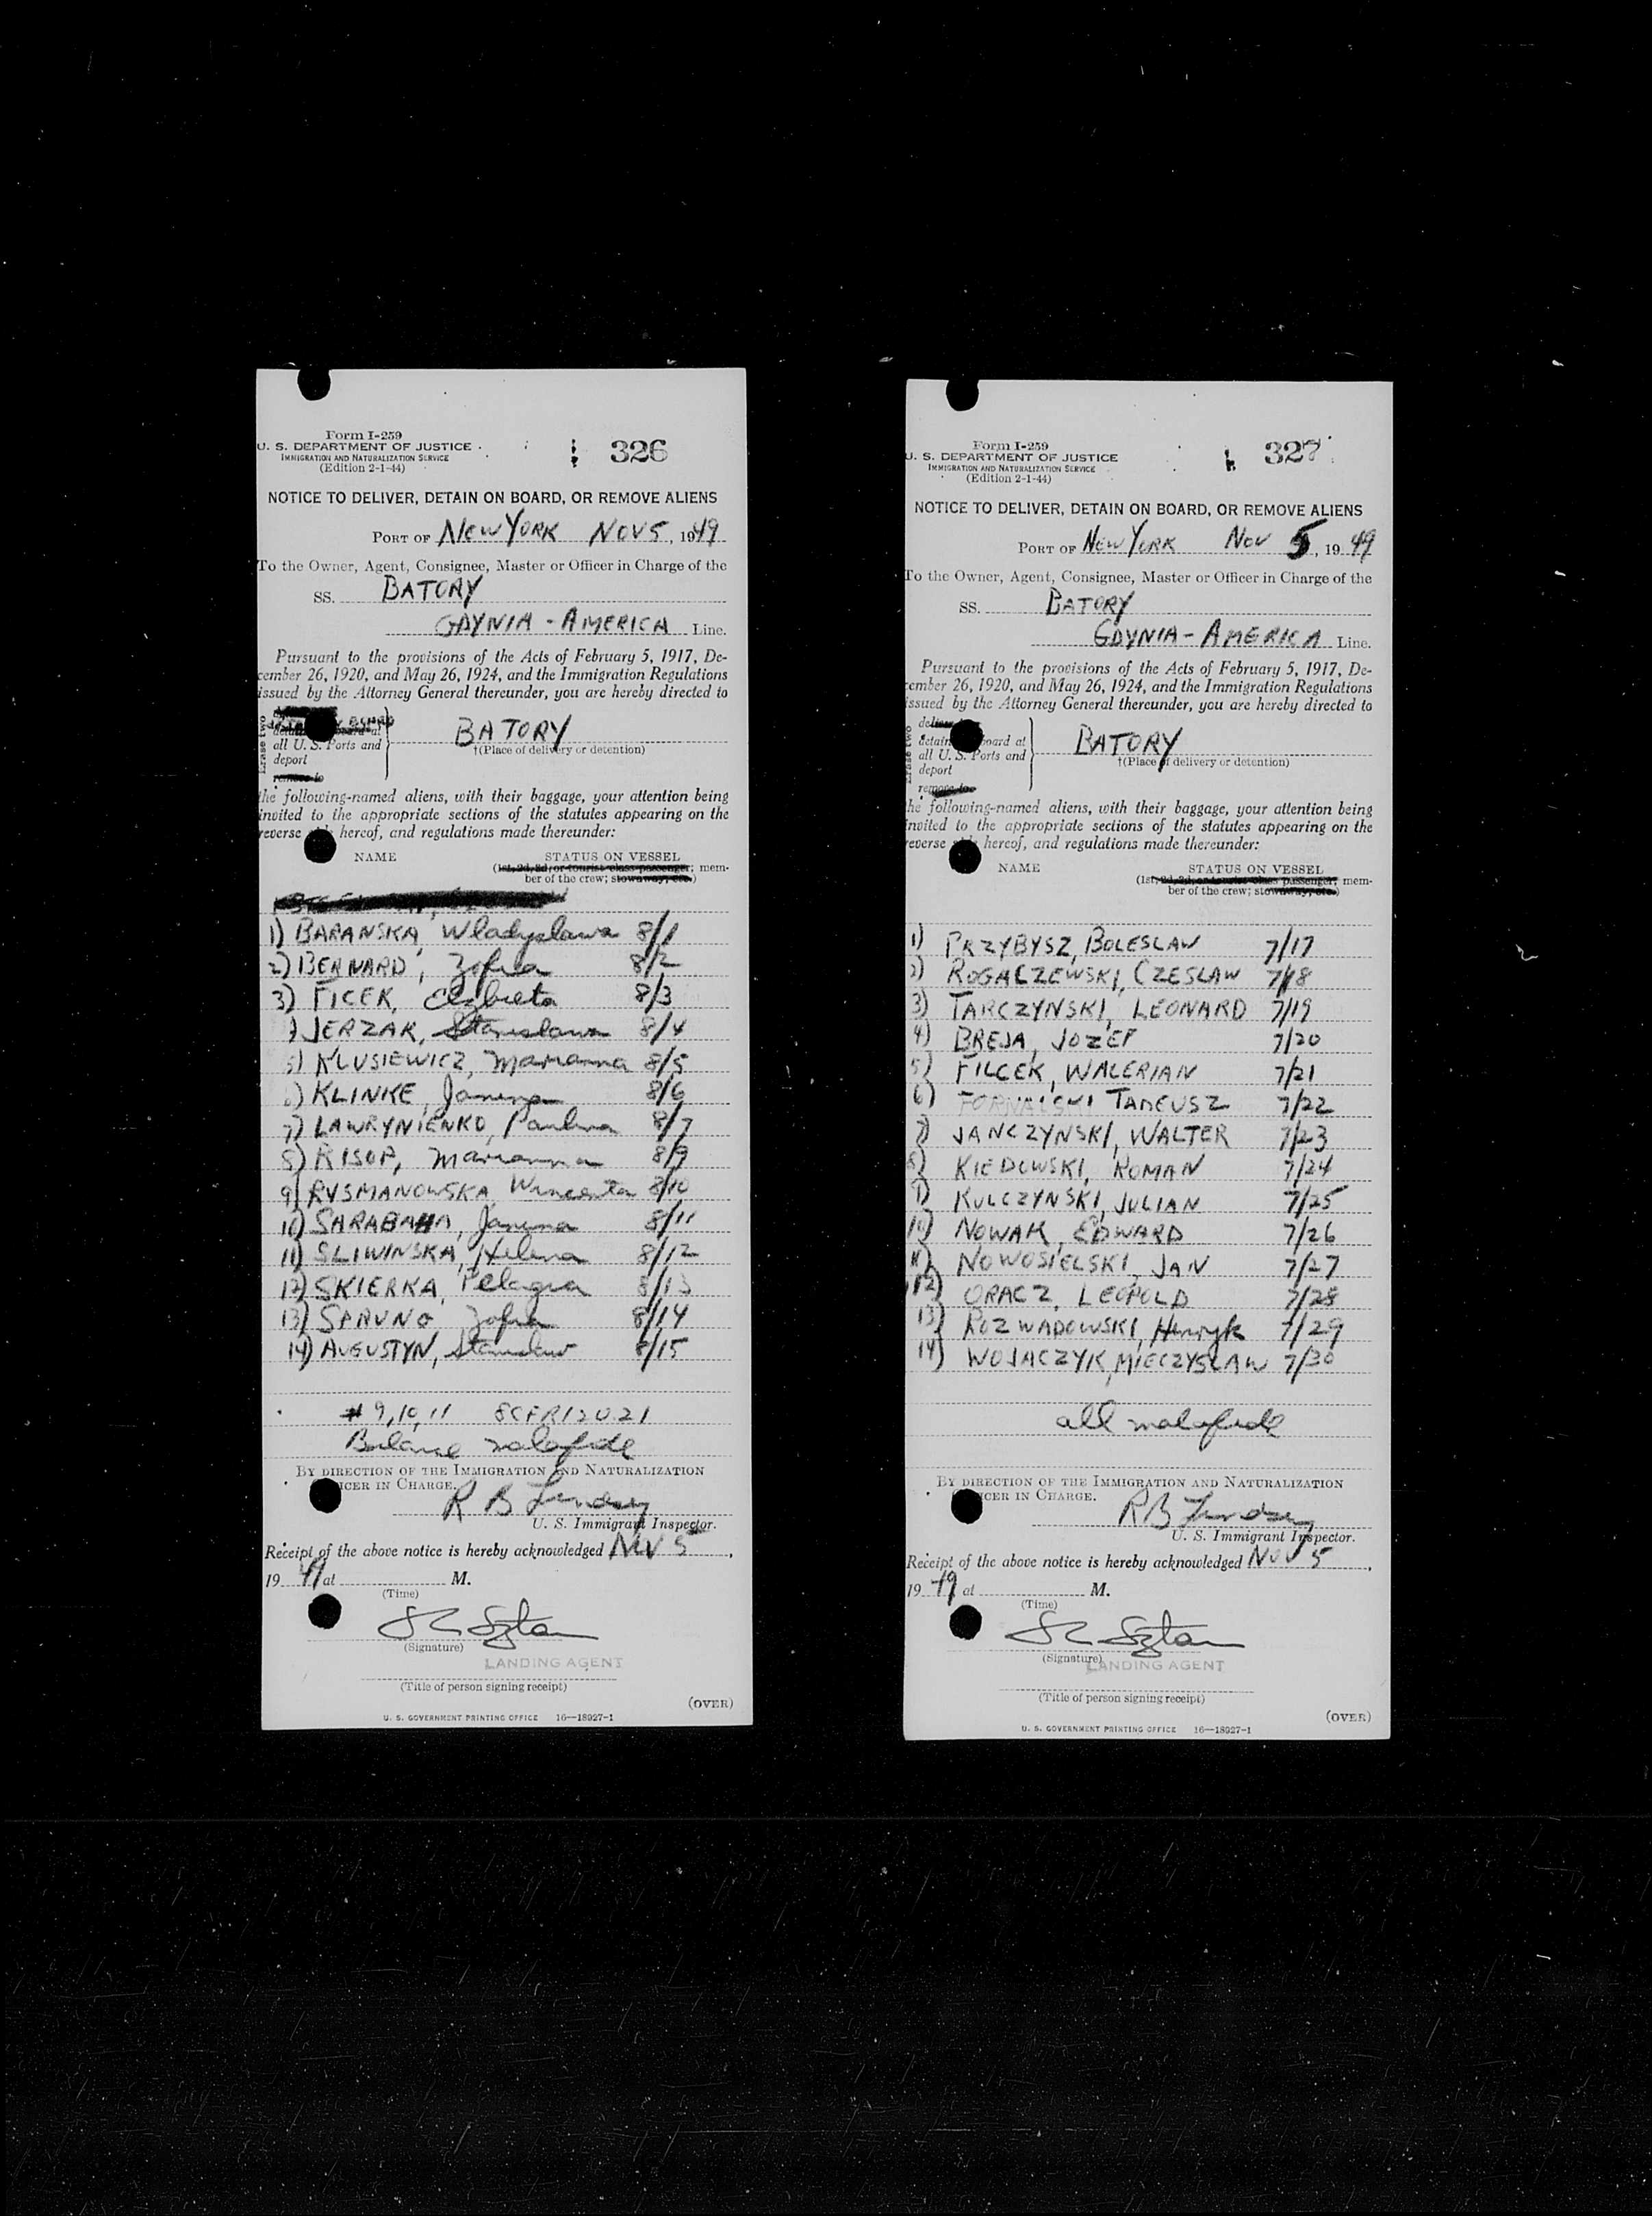 Form I-259
U. S. DEPARTMENT OF JUSTICE
IMMIGRATION AND NATURALIZATION SERVICE
(Edition 2-1-44)
326
NOTICE TO DELIVER, DETAIN ON BOARD, OR REMOVE ALIENS
PORT OF NEW YORK NOV 5, 1949
To the Owner, Agent, Consignee, Master or Officer in Charge of the
SS. BATORY
GDYNIA - AMERICA Line.
Pursuant to the provisions of the Acts of February 5, 1917, De-
cember 26, 1920, and May 26, 1924, and the Immigration Regulations
issued by the Attorney General thereunder, you are hereby directed to
Erase two
board at
all U. S. Ports and
deport
BATORY
†(Place of delivery or detention)
the following-named aliens, with their baggage, your attention being
invited to the appropriate sections of the statutes appearing on the
reverse hereof, and regulations made thereunder:
NAME STATUS ON VESSEL
(1st, 2d, 3d, or tourist class passenger; mem-
ber of the crew; stowaway, etc.)
1) BARANSKA, Wladyslawa 8/1
2) BERNARD, Zofia 8/2
3) FICEK, Elzbieta 8/3
) JERZAK, Stanislawa 8/4
5) KLUSIEWICZ, Marianna 8/5
6) KLINKE, Janina 8/6
7) LAWRYNIENKO, Paulina 8/7
8) RISOP, Marianna 8/9
9) RYSMANOWSKA Wincenta 8/10
10) SARABAHA, Janina 8/11
11) SLIWINSKA, Helena 8/12
12) SKIERKA, Pelagia 8/13
13) Zofia 8/14
14) AUGUSTYN, Stanislaw 8/15
# 9, 10, 11 8CFR120.21
Balance malafide
BY DIRECTION OF THE IMMIGRATION AND NATURALIZATION
ICER IN CHARGE.
R B Lindsey
U. S. Immigrant Inspector.
Receipt of the above notice is hereby acknowledged Nov 5,
1949 at M.
(Time)
(Signature)
LANDING AGENT
(Title of person signing receipt)
(OVER)
U. S. GOVERNMENT PRINTING OFFICE 16—18927-1
Form I-259
U. S. DEPARTMENT OF JUSTICE
IMMIGRATION AND NATURALIZATION SERVICE
(Edition 2-1-44)
327
NOTICE TO DELIVER, DETAIN ON BOARD, OR REMOVE ALIENS
PORT OF NEW YORK NOV 5, 1949
To the Owner, Agent, Consignee, Master or Officer in Charge of the
SS. BATORY
GDYNIA - AMERICA Line.
Pursuant to the provisions of the Acts of February 5, 1917, De-
cember 26, 1920, and May 26, 1924, and the Immigration Regulations
issued by the Attorney General thereunder, you are hereby directed to
Erase two
detain board at
all U. S. Ports and
deport
remove to
BATORY
†(Place of delivery or detention)
the following-named aliens, with their baggage, your attention being
invited to the appropriate sections of the statutes appearing on the
reverse hereof, and regulations made thereunder:
NAME STATUS ON VESSEL
(1st, 2d, 3d, or tourist class passenger; mem-
ber of the crew; stowaway, etc.)
1) PRZYBYSZ, BOLESLAW 7/17
2) ROGACZEWSKI, CZESLAW 7/18
3) TARCZYNSKI, LEONARD 7/19
4) BREJA, JOZEF 7/20
5) FILCEK, WALERIAN 7/21
6) FORNALSKI TADEUSZ 7/22
7) JANCZYNSKI, WALTER 7/23
8) KIEDOWSKI, ROMAN 7/24
9) KULCZYNSKI, JULIAN 7/25
10) NOWAK, EDWARD 7/26
11) NOWOSIELSKI, JAN 7/27
12) ORACZ, LEOPOLD 7/28
13) ROZWADOWSKI, Henryk 7/29
14) WOJACZYK, MIECZYSLAW 7/30
all malafide
BY DIRECTION OF THE IMMIGRATION AND NATURALIZATION
ICER IN CHARGE.
R B Lindsey
U. S. Immigrant Inspector.
Receipt of the above notice is hereby acknowledged Nov 5,
1949 at M.
(Time)
(Signature)
LANDING AGENT
(Title of person signing receipt)
(OVER)
U. S. GOVERNMENT PRINTING OFFICE 16—18927-1